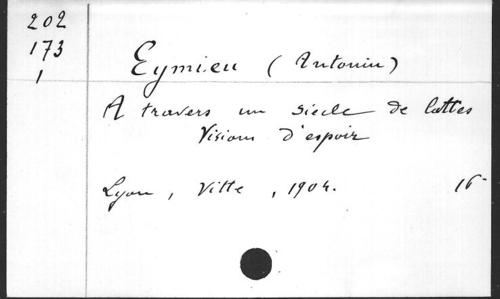 202
173
1
Eymieu (Antonin)
A travers un siècle de luttes
Visions d'espoir
Lyon, Vitte, 1904. 16